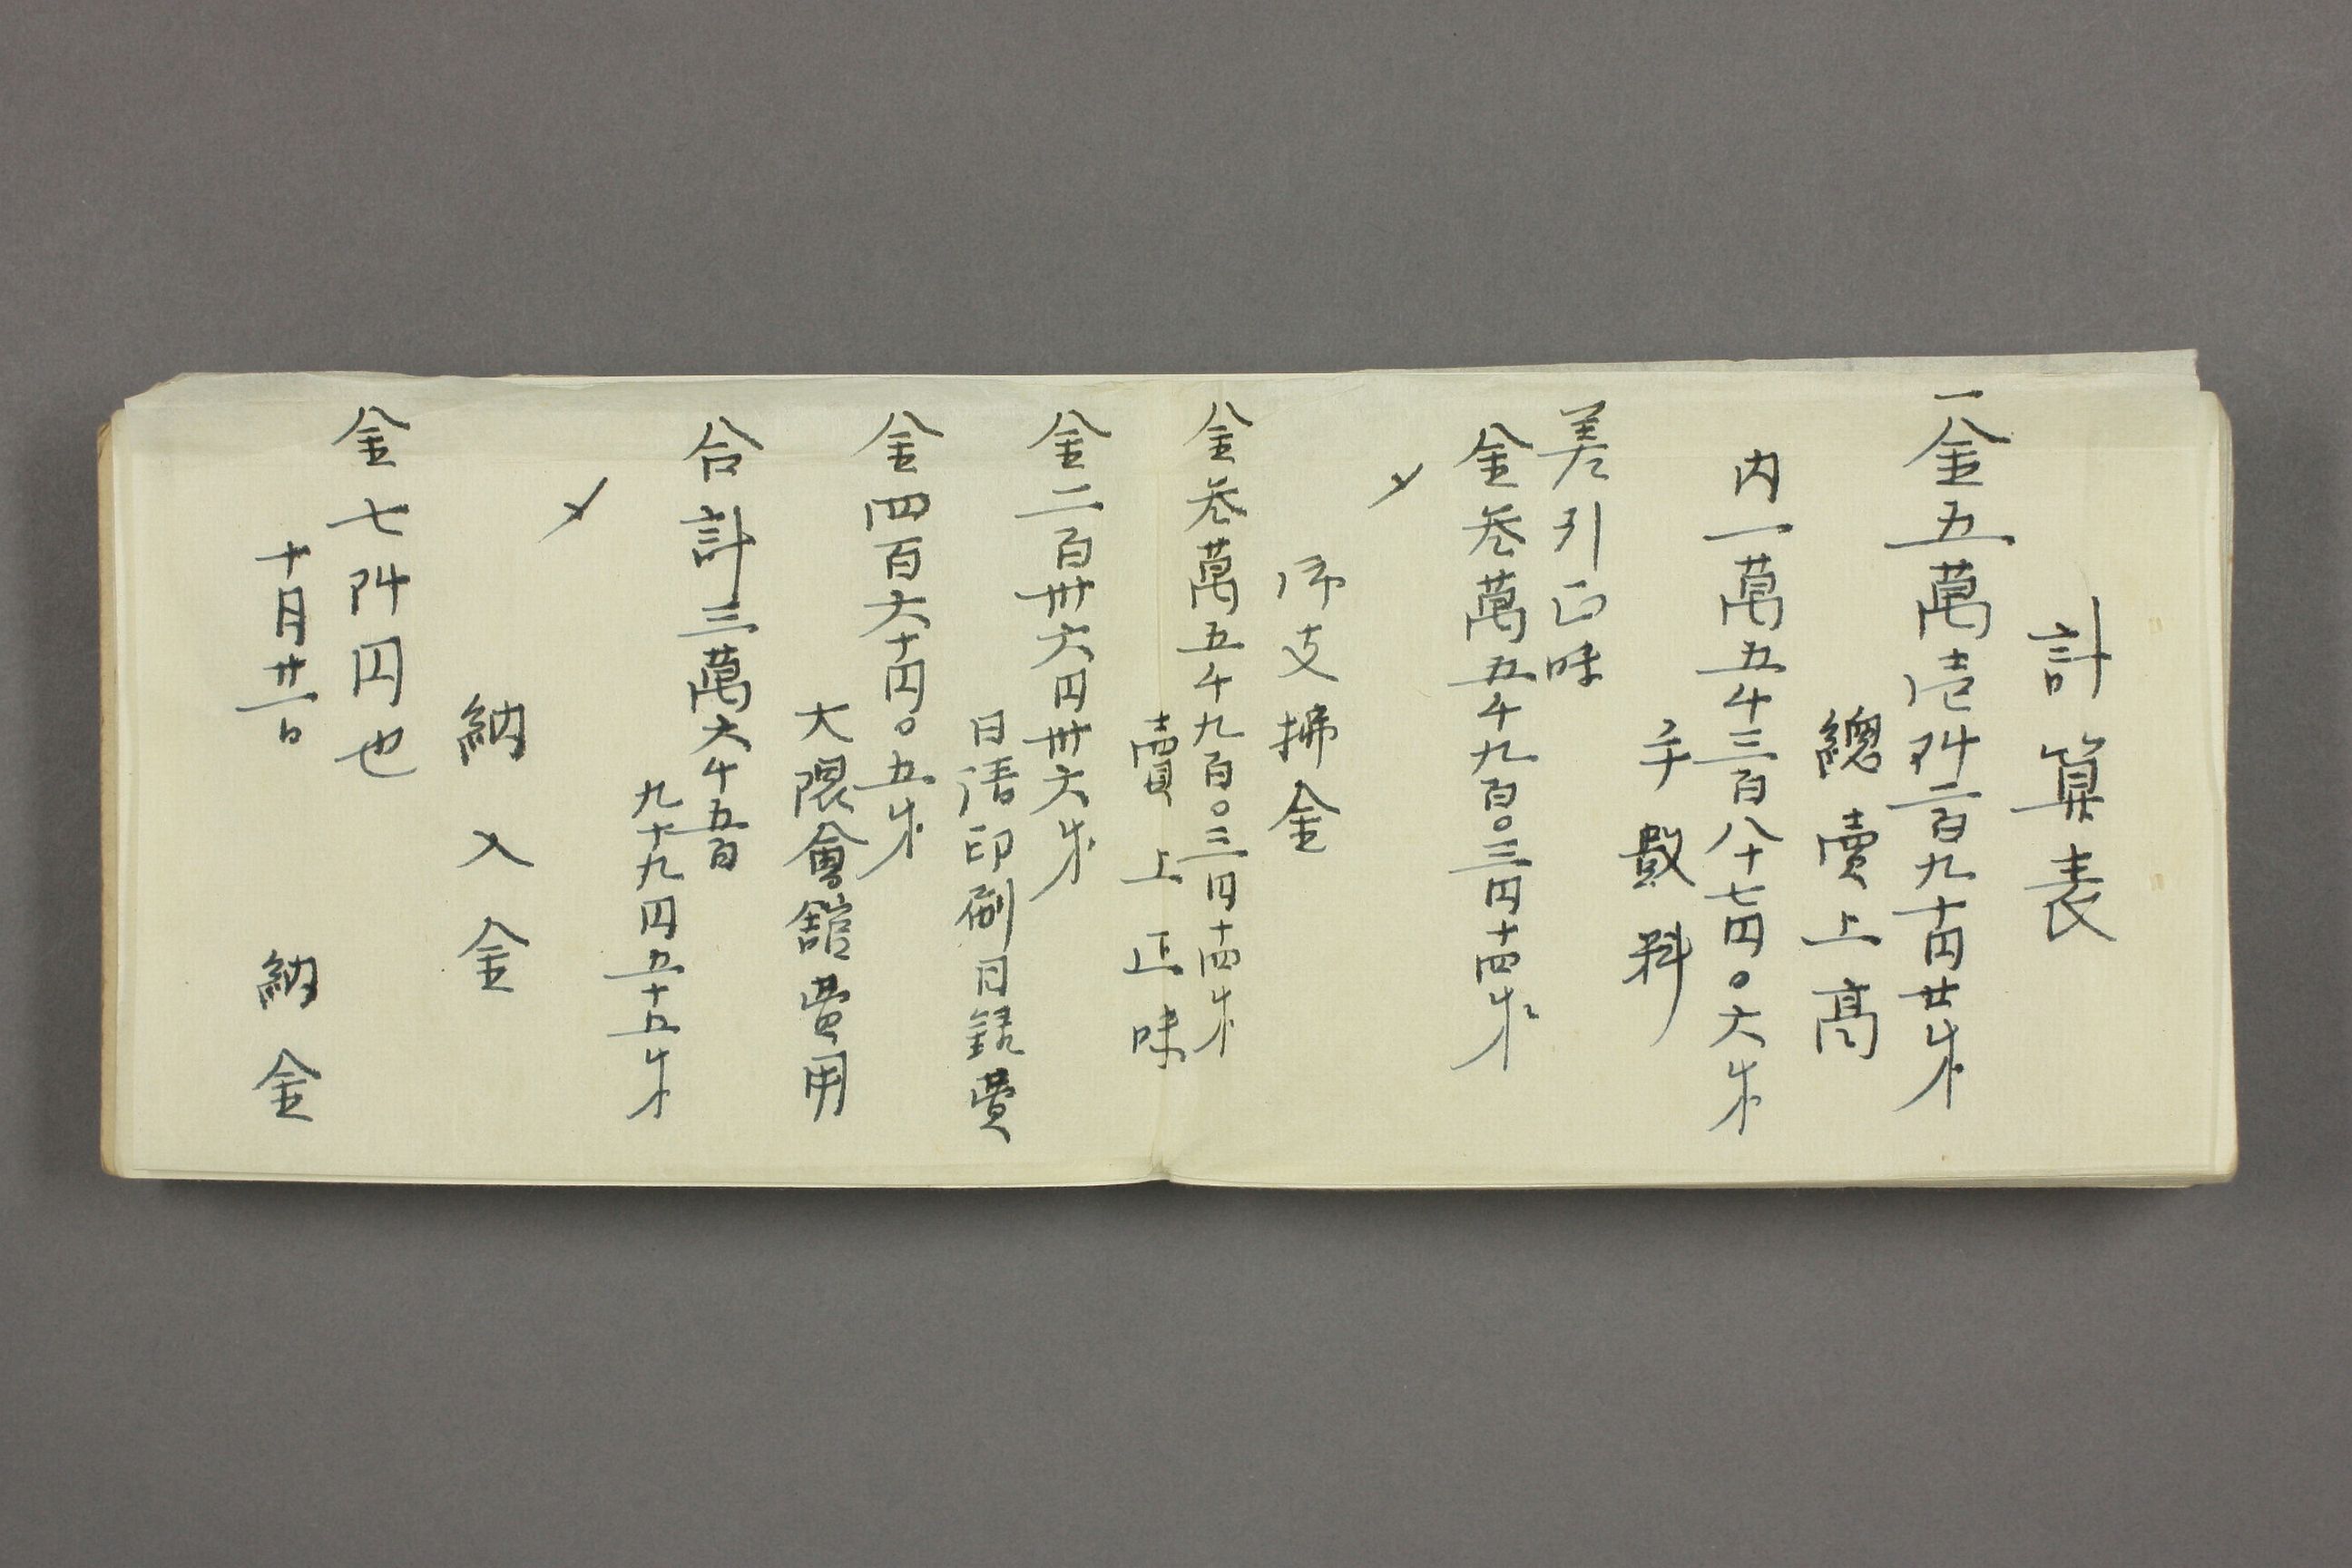 計算表
一金五萬壱阡二百九十円廿銭
總賣上高
内一萬五千三百八十七円〇六銭
手數料
差引正味
金叁萬五千九百〇三円十四銭
〆
御支拂金
金叁萬五千九百〇三円十四銭
賣上正味
金二百卅六円卅六銭
日活印刷目録費
金四百六十円〇五銭
大隈會舘費用
合計三萬六千五百
九十九円五十五銭
〆
納入金
金七阡円也
十月廿一日 納金